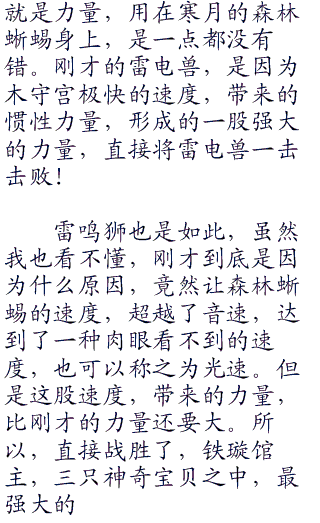 就是力量，用在寒月的森林
蜥蜴身上，是一点都没有
错。刚才的雷电兽，是因为
木守宫极快的速度，带来的
惯性力量，形成的一股强大
的力量，直接将雷电兽一击
击败！
雷鸣狮也是如此，虽然
我也看不懂，刚才到底是因
为什么原因，竟然让森林蜥
蜴的速度，超越了音速，达
到了一种肉眼看不到的速
度，也可以称之为光速。但
是这股速度，带来的力量，
比刚才的力量还要大。所
以，直接战胜了，铁璇馆
主，三只神奇宝贝之中，最
强大的